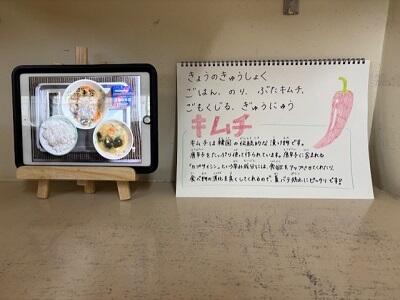 きょうのきゅうしょく
ごはん、のり、ぶたキムチ、
ごもくじる、ぎゅうにゅう
キムチ
キムチは韓国の伝統的な漬け物です。
唐辛子をたっぷり使って作られています。唐辛子に含まれる
「カプサイシン」という辛み成分には、食欲をアップさせてくれたり、
食べ物の消化を良くしてくれるので、夏バテ防止にピッタリです!!